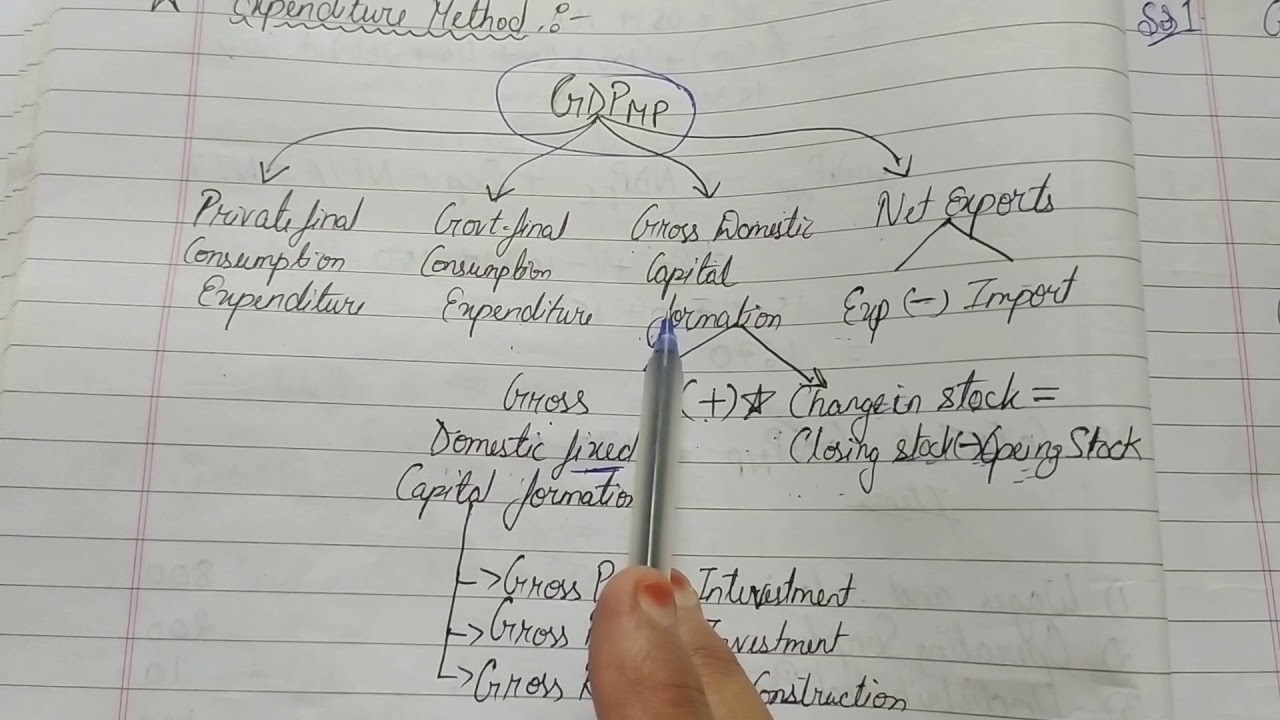 Expenditure Method :-
Sol 1
GDPMP
Private final
Consumption
Expenditure
Govt. final
Consumption
Expenditure
Gross Domestic
Capital
formation
Net Exports
Exp (-) Import
Gross
Domestic fixed
Capital formation
(+) ☆ Change in stock =
Closing stock (-) Opeing Stock
-> Gross Intvestment
-> Gross Investment
-> Gross Construction